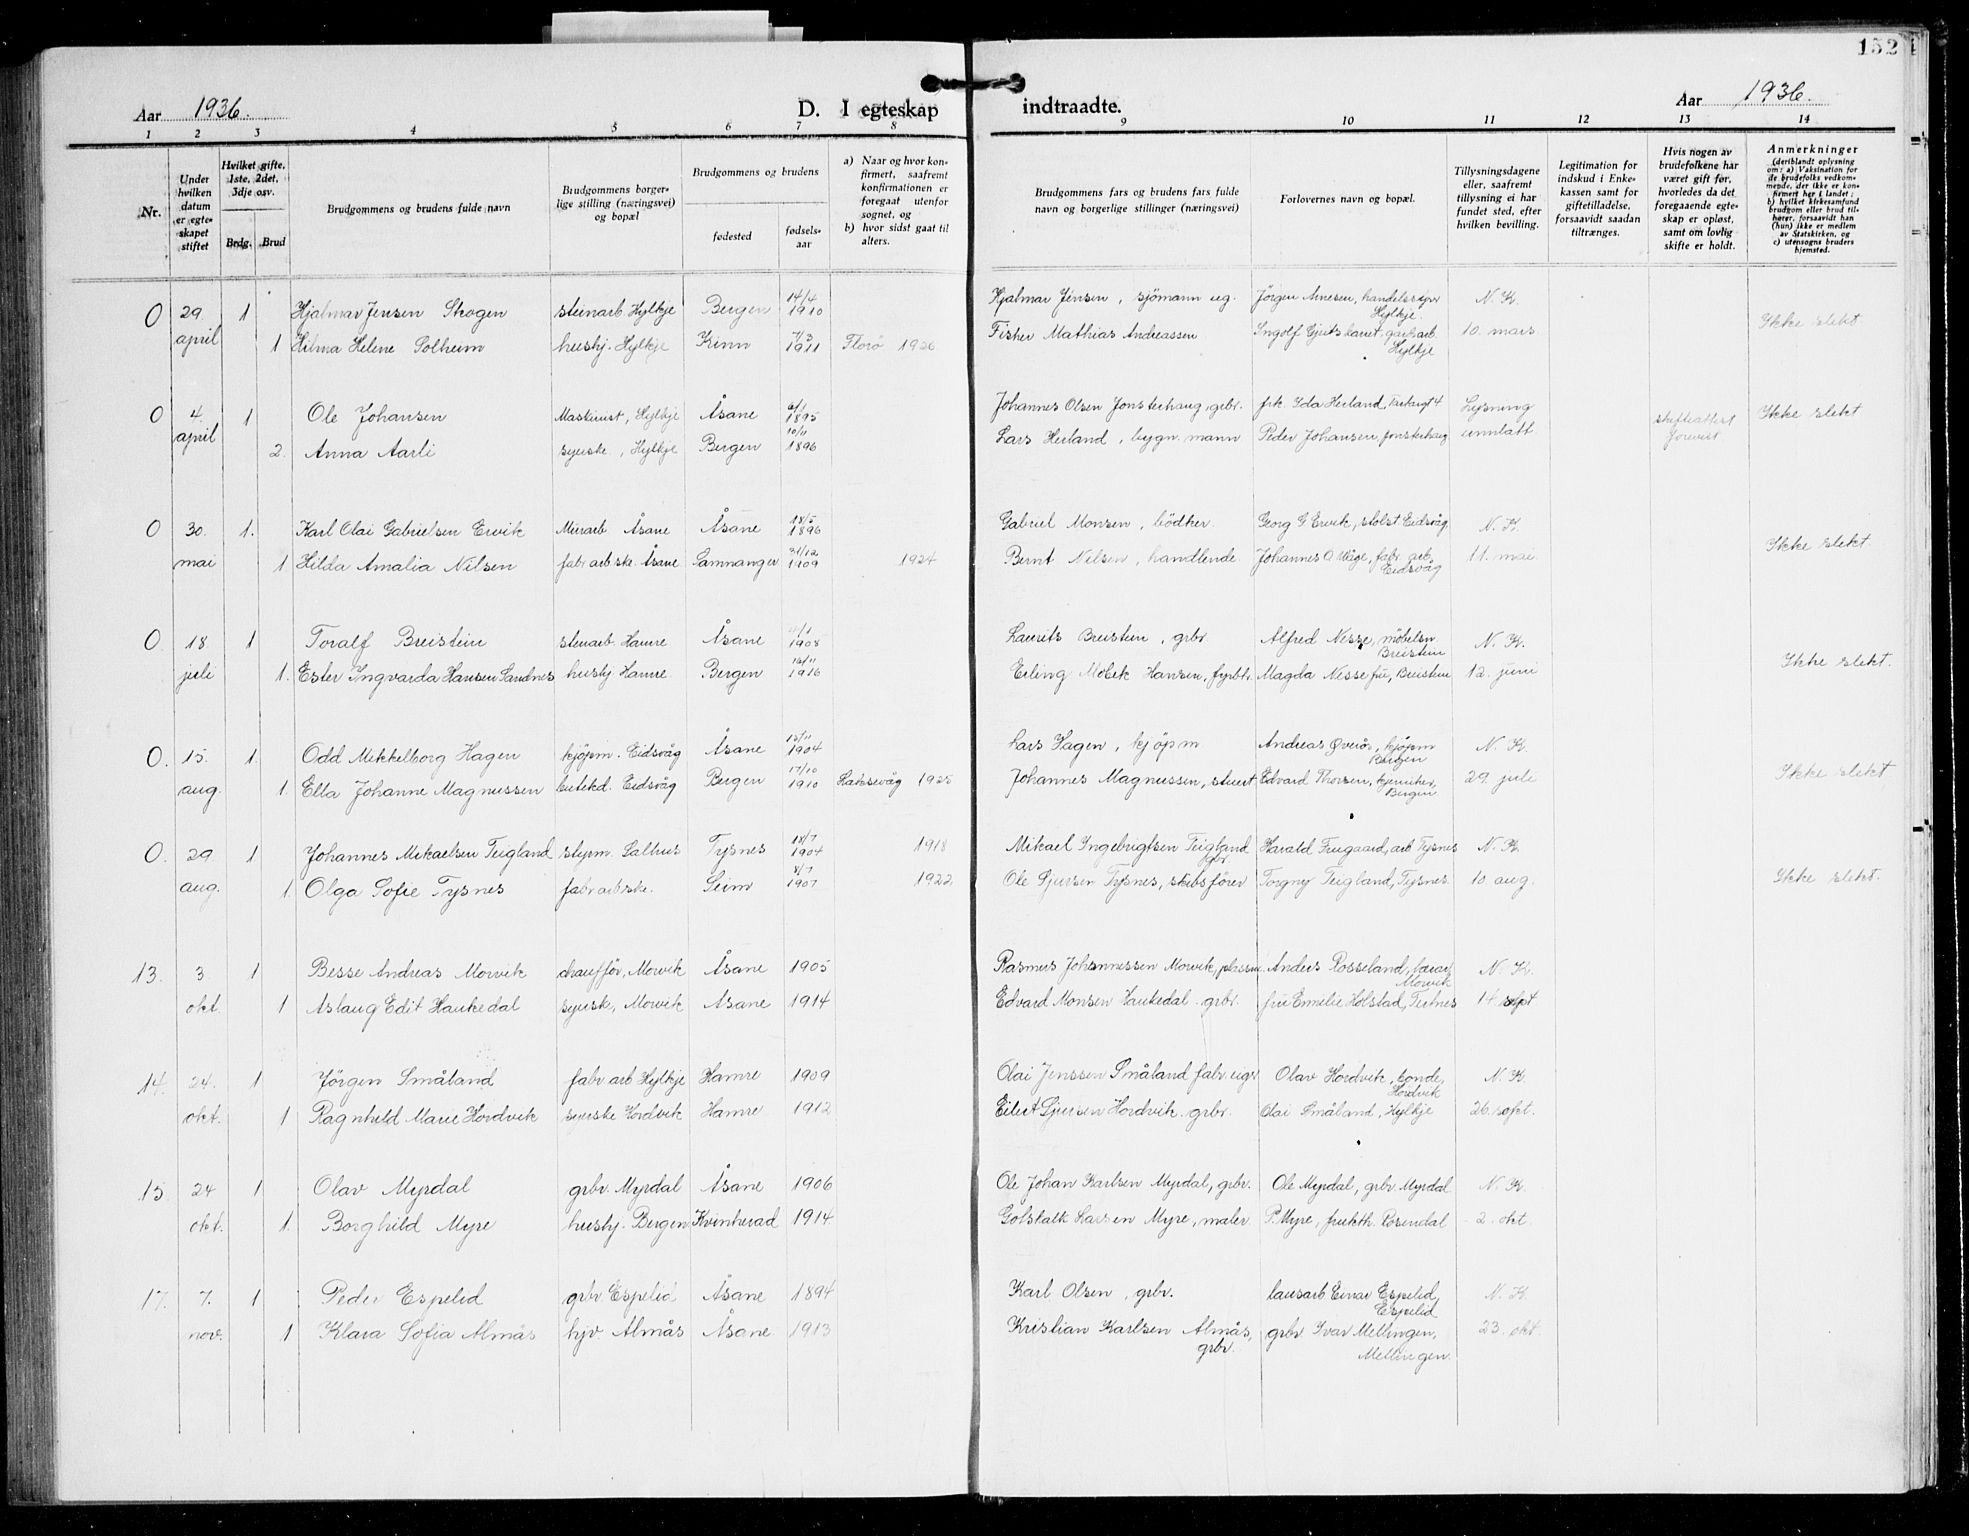 152
Aar 1936. D. I egteskap indtraadte. Aar 1936.
1 2 3 4 5 6 7 8 9 10 11 12 13 14
Nr.
Under hvilken datum er egteskapet stiftet
Hvilket gifte, 1ste, 2det, 3dje osv.
Brdg. Brud
Brudgommens og brudens fulde navn
Brudgommens borgerlige stilling (næringsvei) og bopæl
Brudgommens og brudens
fødested fødselsaar
a) Naar og hvor konfirmert, saafremt konfirmationen er foregaat utenfor sognet, og
b) hvor sidst gaat til alters.
Brudgommens fars og brudens fars fulde navn og borgerlige stillinger (næringsvei)
Forlovernes navn og bopæl.
Tillysningsdagene eller, saafremt tillysning ei har fundet sted, efter hvilken bevilling.
Legitimation for indskud i Enkekassen samt for giftetilladelse, forsaavidt saadan tiltrænges.
Hvis nogen av brudefolkene har været gift før, hvorledes da det foregaaende egteskap er opløst, samt om lovlig skifte er holdt.
Anmerkninger (deriblandt oplysning om: a) Vaksination for de brudefolks vedkommende, der ikke er konfirmert her i landet; b) hvilket kirkesamfund brudgom eller brud tilhører, forsaavidt han (hun) ikke er medlem av Statskirken, og c) utensogns bruders hjemsted.
0 29 1 Hjalmar Jensen Skogen steinarb. Hylkje Bergen 14/4 1910 Hjalmar Jensen, sjömann Jörgen Arnesen, Hylkje N. K.
april 1 Hilma Helene Solheim hushj. Hylkje Kinn 7/3 1911 Florö 1926 Fisker Mathias Andreassen Ingolf Hylkje 10. mars Ikke slekt
0 4. 1 Ole Johansen Maskinist, Hylkje Åsane 1895 Johannes Olsen Jonsterhaug, grbr. frk. Yda Herland, Lysning Ikke slekt
april 2. Anna Aarli syerske, Hylkje Bergen 10/11 1896 Lars Herland, bygn. mann Peder Johansen, Jonsterhaug unnlatt skifteattest forevist
0 30. 1. Karl Olai Gabrielsen Ervik Murarb Åsane Åsane 18/5 1896 Gabriel Monsen, bödker Georg G Ervik, Eidsvåg N. K.
mai 1 Hilda Amalia Nilsen fabrarbske. Åsane Samnanger 31/12 1909 1924 Bernt Nilsen, handlende Johannes O. Våge, fabr. arb. Eidsvåg 11. mai Ikke slekt
0 18 1 Toralf Breistein steinarb. Hamre Åsane 1908 Laurits Breistein, grbr. Alfred Nesse, möbelsn. Breistein N. K.
juli 1. Ester Ingvarda Hansen Sandnes hushj. Hamre Bergen 1916 Erling Hansen, fyrbt. Magda Nesse fru, Breistein 12. juni Ikke slekt.
0. 15. 1. Odd Mikkelborg Hagen kjöpm. Eidsvåg Åsane 1904 Lars Hagen, kjöpm Andreas Øverör, kjöpm Bergen N. K.
aug. 1. Ella Johanne Magnussen butekd. Eidsvåg Bergen 17/10 1910 Laksevåg 1925 Johannes Magnussen, stuert Edvard Thorsen, kjemiker, Bergen 29. juli Ikke slekt
0. 29 1 Johannes Mikaelsen Teigland styrm. Salhus Tysnes 18/7 1904 1918 Mikael Ingebrigtsen Teigland gbr. Harald Frugaard, arb Tysnes N. K.
aug. 1 Olga Sofie Tysnes fabrarbske. Seim 8/7 1907 1922 Ole Sjursen Tysnes, skibsförer Torgny Teigland, Tysnes. 10 aug. Ikke slekt.
13. 3. 1 Besse Andreas Morvik chaufför, Morvik Åsane 1905 Rasmus Johannessen Morvik, plassm. Anders Rosseland, lærar Morvik N. K.
okt. 1 Aslaug Edit Haukedal syerske, Morvik Åsane 1914 Edvard Monsen Haukedal grbr. fru Emelie Holstad, Tertnes 14 sept
14. 24. 1 Jörgen Småland fabr. arb Hylkje Hamre 1909 Olai Jenssen Småland fabr. eigr Olav Hordvik, bonde, Hordvik N. K.
okt. 1 Ragnhild Marie Hordvik syerske Hordvik Hamre 1912 Eilert Sjursen Hordvik grbr. Olai Småland, Hylkje 26. sept.
15. 24 1 Olav Myrdal grbr. Myrdal Åsane 1906 Ole Johan Karlsen Myrdal, grbr. Ole Myrdal, grbr Myrdal N. K.
okt. 1. Borghild Myre hushj. Bergen Kvinherad 1914 Golskalk Larsen Myre, maler P. Myre, frukth. Rosendal 2. okt
17. 7. 1 Peder Espelid grbr Espelid Åsane 1894 Karl Olsen, grbr. lausarb Einar Espelid, Espelid N. K.
nov. 1 Klara Sofia Almås hjv Almås Åsane 1913 Kristian Karlsen Almås, grbr. grbr Ivar Mellingen, Mellingen. 23. okt.